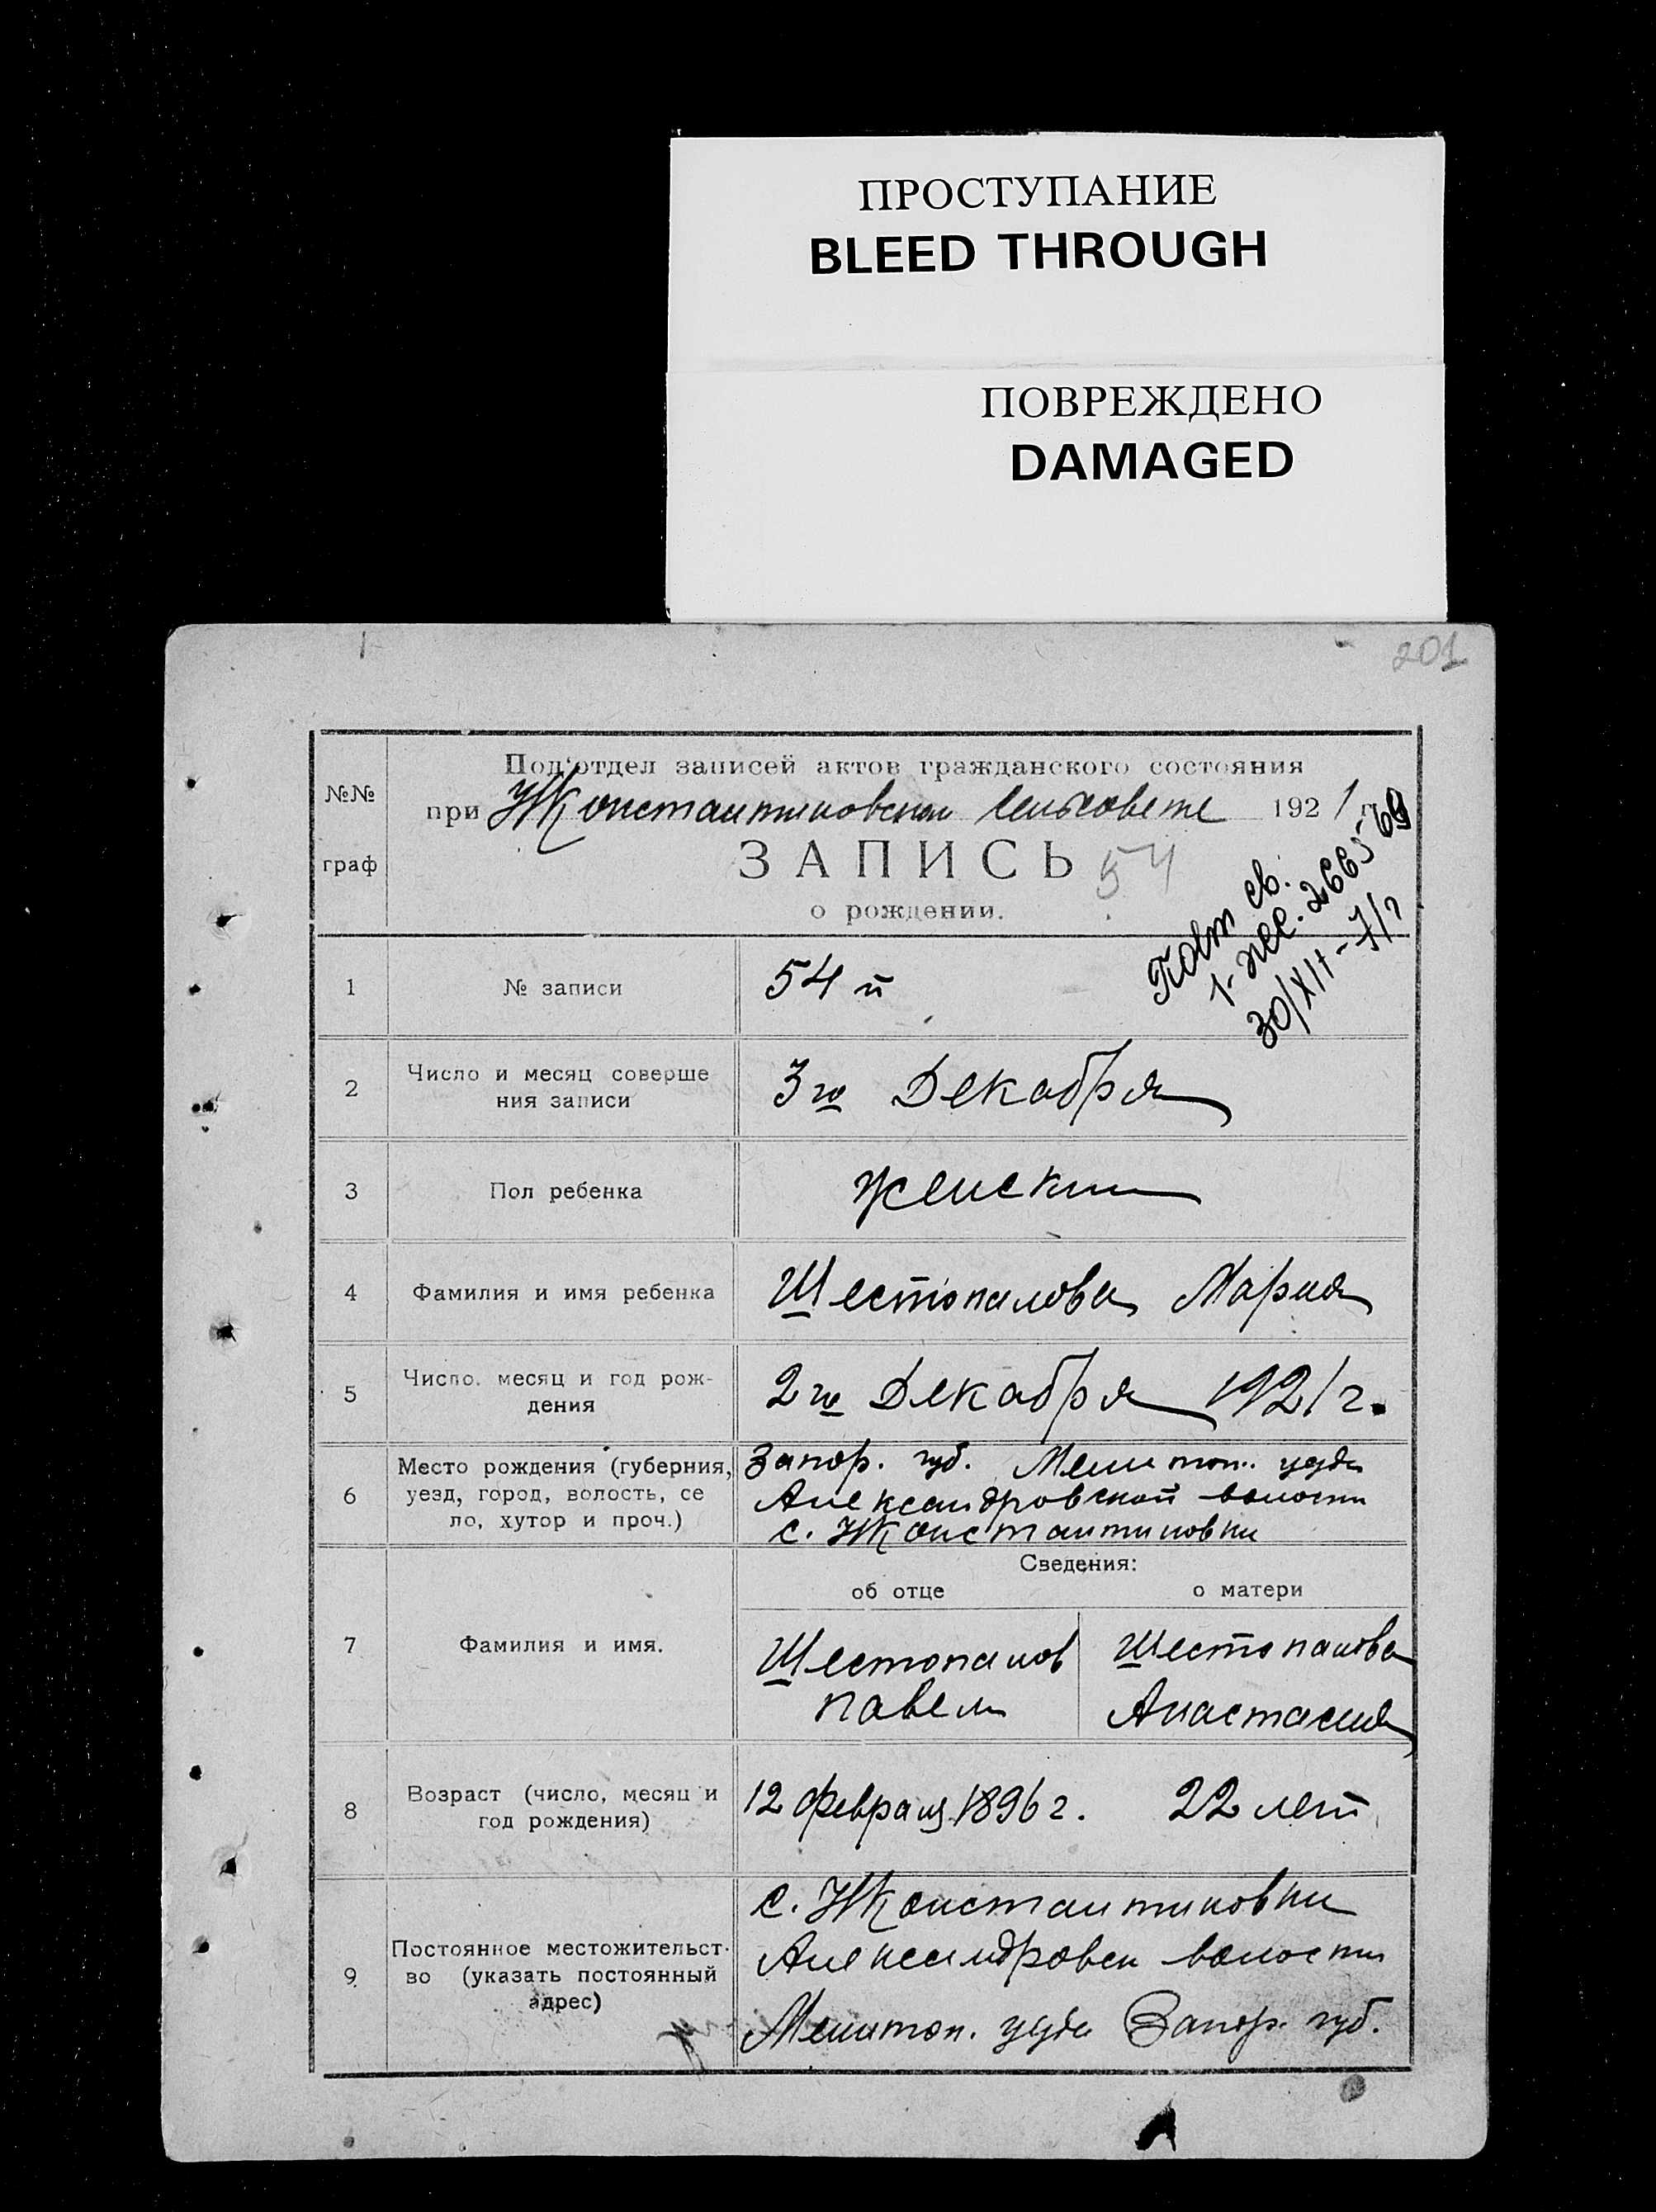 ПРОСТУПАНИЕ
BLEED THROUGH
ПОВРЕЖДЕНО
DAMAGED
201
Под'отдел записей актов гражданского состояния
№№
при Константиновском сельсовете 1921
граф
ЗАПИСЬ 54
о рождении.
Повт св.
30/XII-71г
1 № записи 54 й
2 Число и месяц соверше
ния записи
3го Декабря
3 Пол ребенка Женский
4 Фамилия и имя ребенка Шестопалова Мария
5 Число, месяц и год рож-
дения
2го Декабря 1921 г.
6 Место рождения (губерния,
уезд, город, волость, се
ло, хутор и проч.)
Запор. губ. Мелитоп. уезда
Александровской волости
с. Константиновки
Сведения:
об отце о матери
7 Фамилия и имя.
Шестопалов
Павел
Шестопалова
Анастасия
8 Возраст (число, месяц и
год рождения)
12 февраля 1896 г. 22 лет
9 Постоянное местожительст-
во (указать постоянный
адрес)
с. Константиновки
Александровск волости
Мелитоп. уезда Запор. губ.